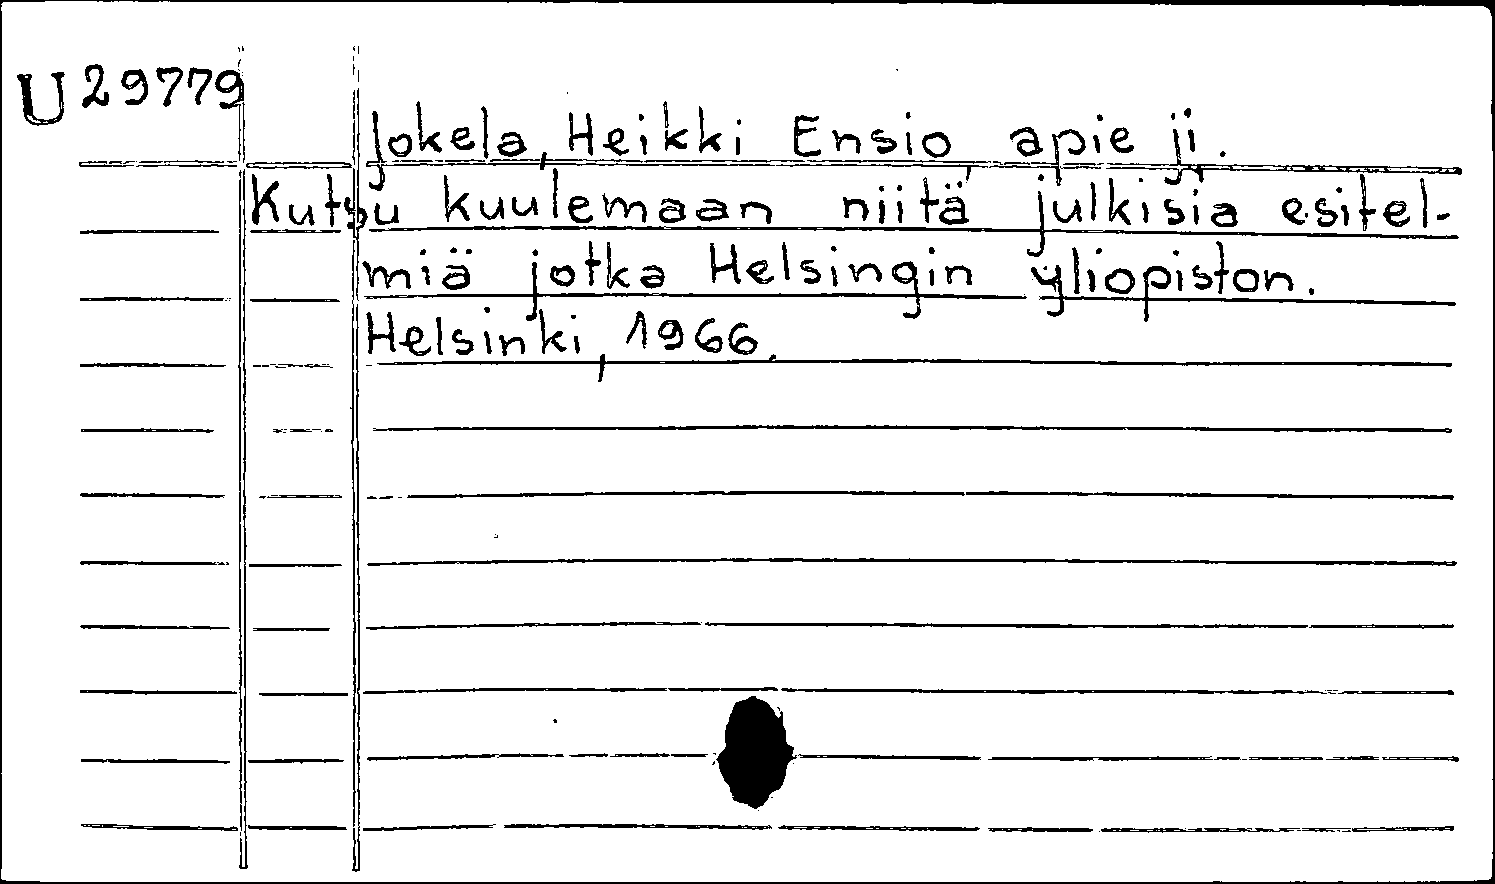 U 29779
Jokela, Heikki Ensio apie jį.
Kutsu kuulemaan niitä julkisia esitel-
miä jotka Helsingin yliopiston.
Helsinki, 1966.